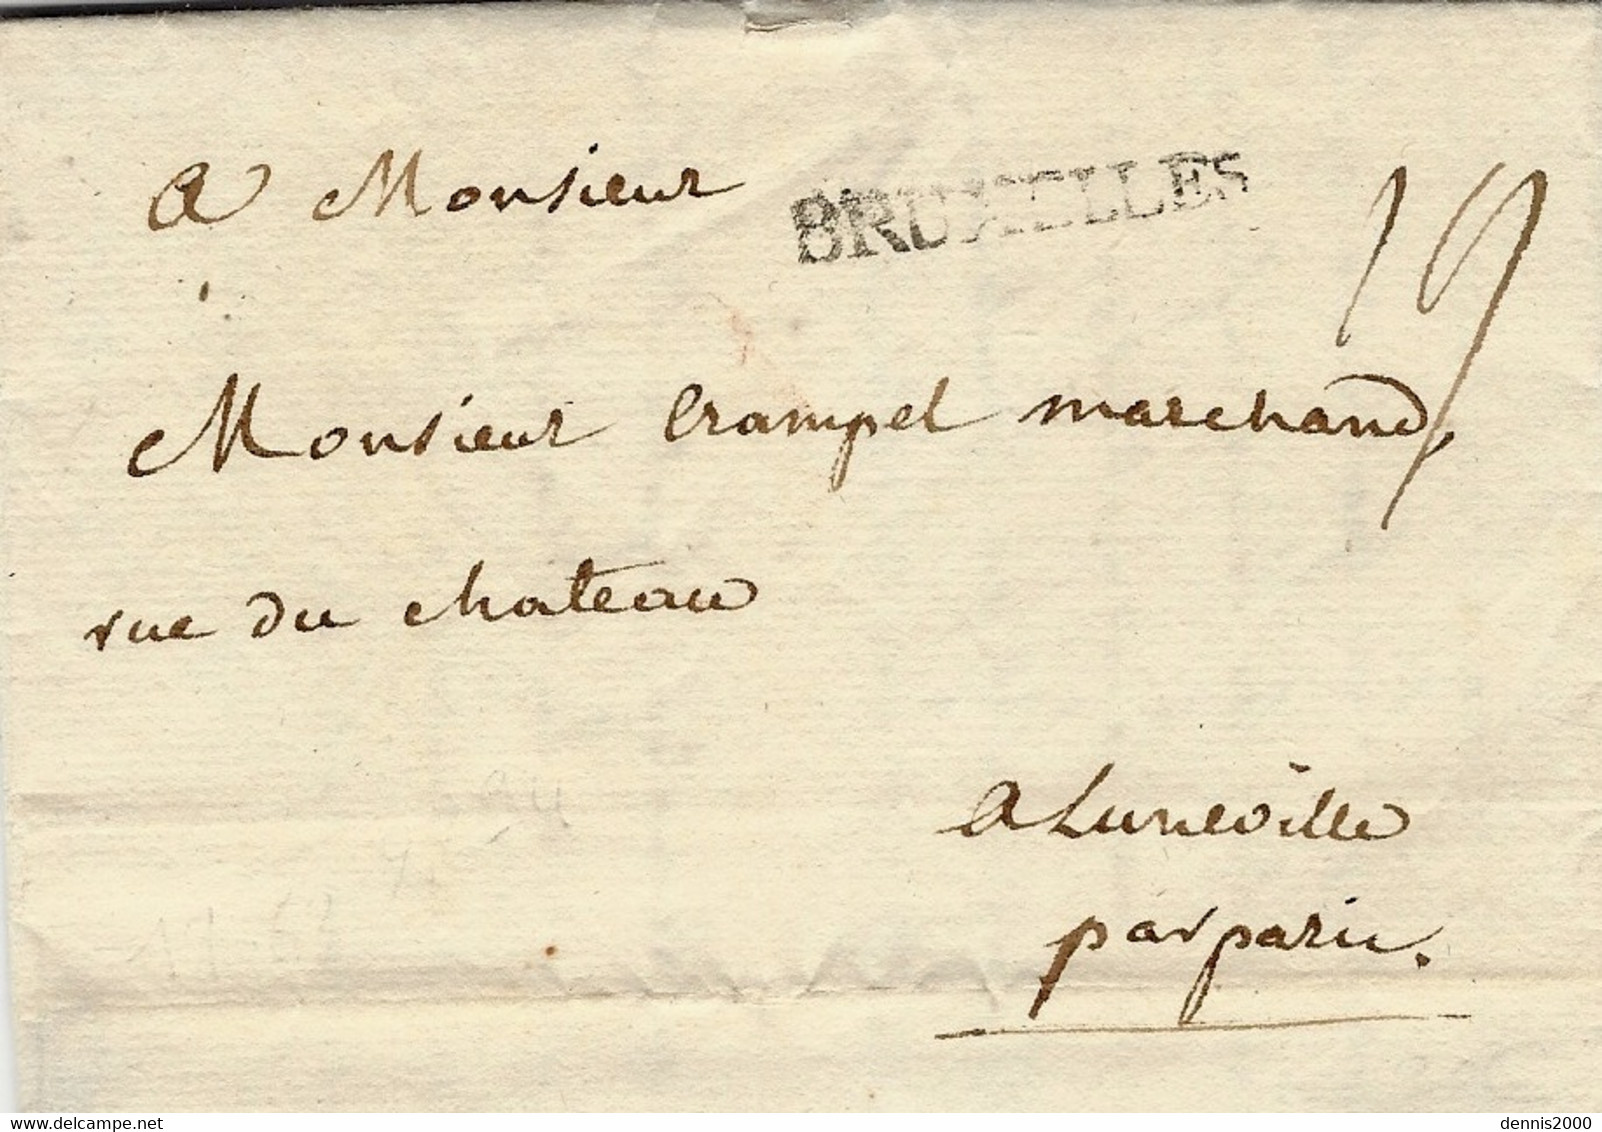 A Monsieur
BRUXELLES
19
Monsieur Crampel marchand,
rue du chateau
A Luneville
par paris.
dennis2000